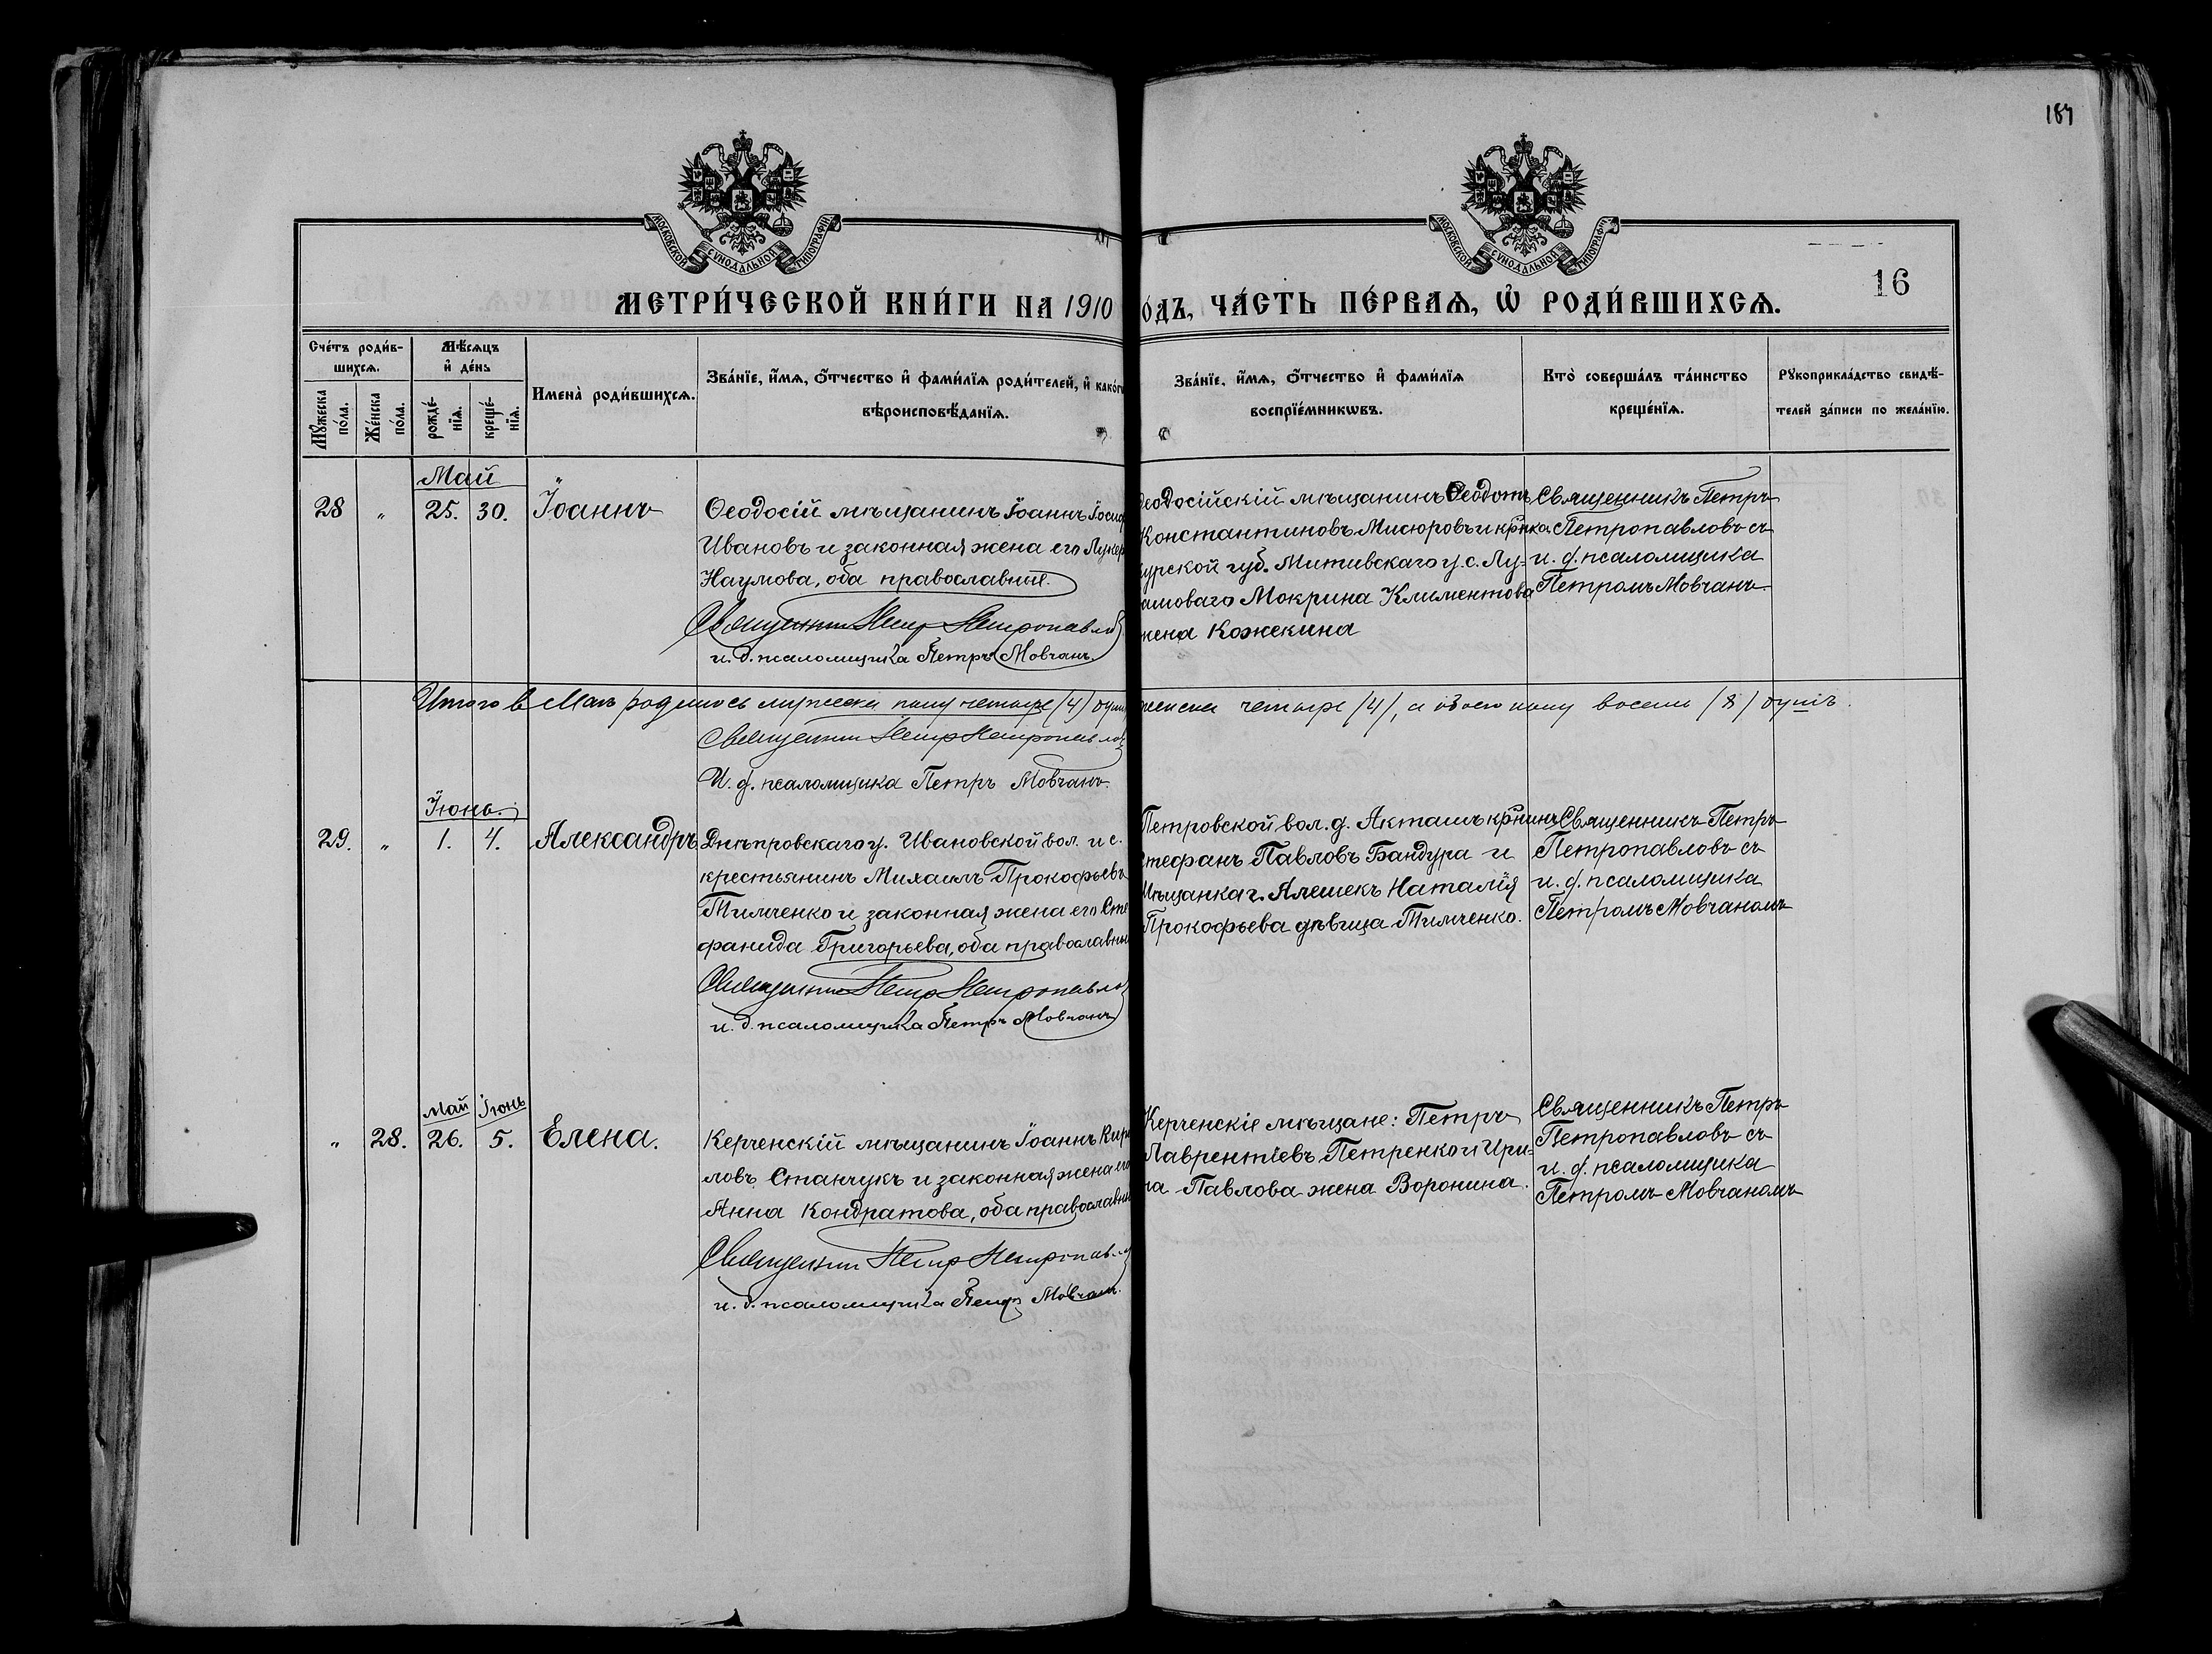 187
МОСКОВСКОЙ СУНОДАЛЬНОЙ ТИПОГРАФІИ
МОСКОВСКОЙ СУНОДАЛЬНОЙ ТИПОГРАФІИ
16
МЕТРИ́ЧЕСКОЙ КНИ́ГИ НА 1910
О́ДЪ, ЧА́СТЬ ПЕ́РВАѦ, Ѽ РОДИ́ВШИХСѦ.
Сче́тъ роди́в-
шихсѧ.
Мѣ́сѧцъ
и҆ де́нь
Мꙋ́жеска
по́ла.
Же́нска
по́ла.
рожде́-
нїѧ.
креще́-
нїѧ.
Имена̀ роди́вшихсѧ.
Зва́нїе, и҆́мѧ, ѻ҆́тчество и҆ фами́лїѧ роди́телей, и҆ како́г
вѣроисповѣ́данїѧ.
Зва́нїе, и҆́мѧ, ѻ҆́тчество и҆ фами́лїѧ
воспрїе́мникѡвъ.
Кто̀ соверша́лъ та́инство
креще́нїѧ.
Рꙋкоприкла́дство свидѣ́-
телей за́писи по жела́нїю.
Май
28 „ 25. 30. Іоаннъ
Ѳеодосій мѣщанинъ Іоаннъ Іосиф
Ивановъ и законная жена его Лукер
Наумова, оба православные.
Священникъ Петръ Петропавлов
и. д. псаломщика Петръ Мовчанъ.
еодосійскій мѣщанинъ Ѳеодотъ
Константиновъ Мисюровъ и кр̃нка
урской губ. Митивскаго у. с. Лу-
ашоваго Мокрина Климентова
жена Кожекина
Священникъ Петръ
Петропавловъ съ
и. д. псаломщика
Петромъ Мовчанъ.
Итого в Маѣ родилось мужеска полу четыре /4/ душ
женска четыре /4/, а обоего полу восемь /8/ душъ.
Священникъ Петръ Петропавлов
И. д. псаломщика Петръ Мовчанъ.
Іюнь.
29. „ 1. 4. Александръ
Днѣпровскаго у. Ивановской вол. и с.
крестьянинъ Михаилъ Прокофьевъ
Тимченко и законная жена его Сте
фанида Григорьева, оба православны
Священникъ Петръ Петропавло
и. д. псаломщика Петръ Мовчанъ
Петровской вол. д. Акташъ кр̃нинъ
Стефанъ Павловъ Бандура и
Мѣщанка г. Алешекъ Наталія
Прокофьева дѣвица Тимченко.
Священникъ Петръ
Петропавловъ съ
и. д. псаломщика
Петромъ Мовчаномъ
Май Іюнь
„ 28. 26. 5. Елена.
Керченскій мѣщанинъ Іоаннъ Кири
ловъ Станчукъ и законная жена его
Анна Кондратова, оба православны
Священникъ Петръ Петропавло
и. д. псаломщика Петръ Мовчанъ.
Керченскіе мѣщане: Петръ
Лаврентіевъ Петренко и Ири-
на Павлова жена Воронина.
Священникъ Петръ
Петропавловъ съ
и. д. псаломщика
Петромъ Мовчаномъ